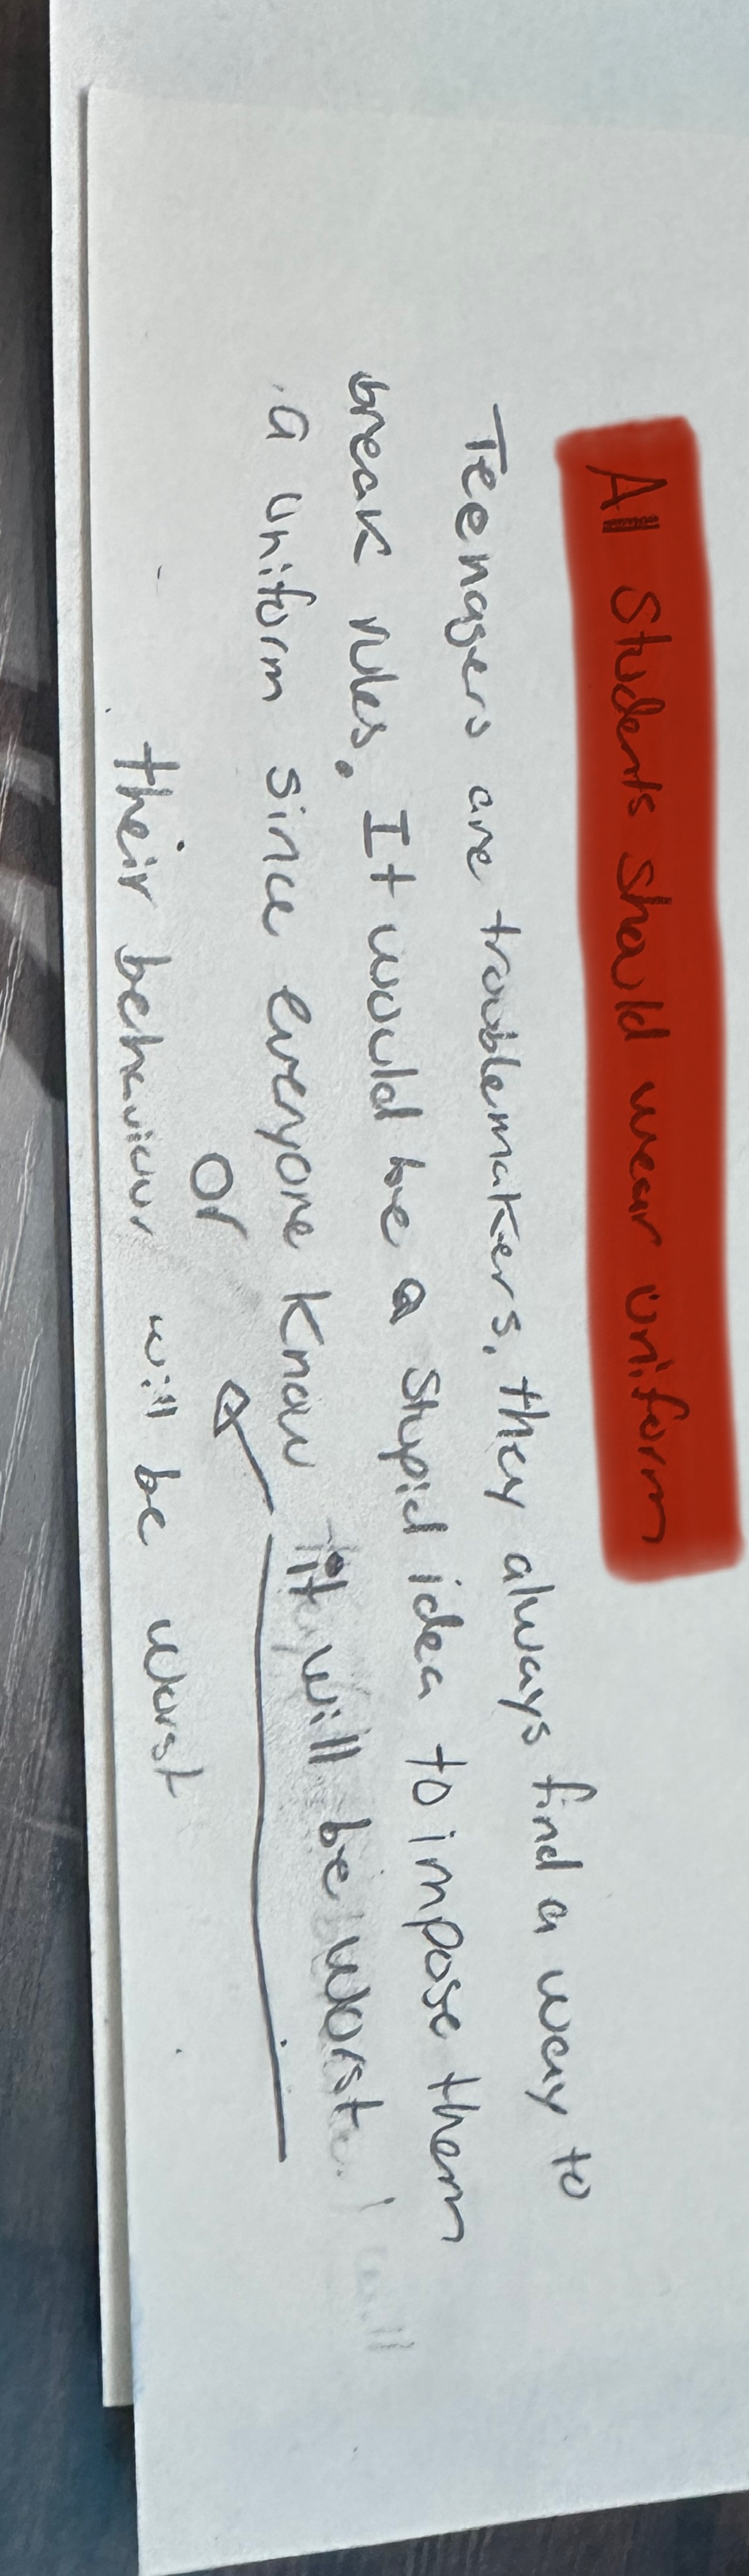 All Students should wear uniform
Teenagers are troublemakers, they always find a way to
break rules. It would be a stupid idea to impose them
a uniform since everyone know it will be worst.
or
their behaviour will be worst